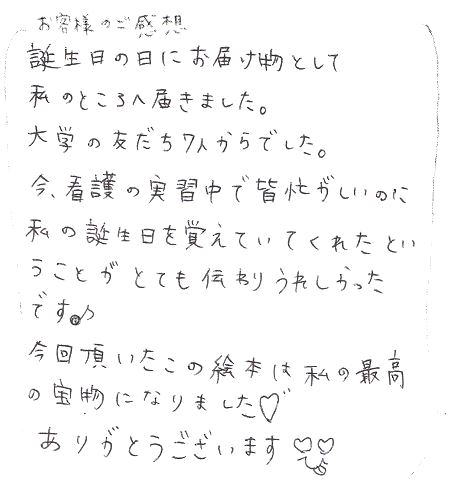 お客様のご感想
誕生日の日にお届け物として
私のところへ届きました。
大学の友だち7人からでした。
今、看護の実習中で皆忙がしいのに
私の誕生日を覚えていてくれたとい
うことがとても伝わりうれしかった
です♪
今回頂いたこの絵本は私の最高
の宝物になりました♡
ありがとうございます